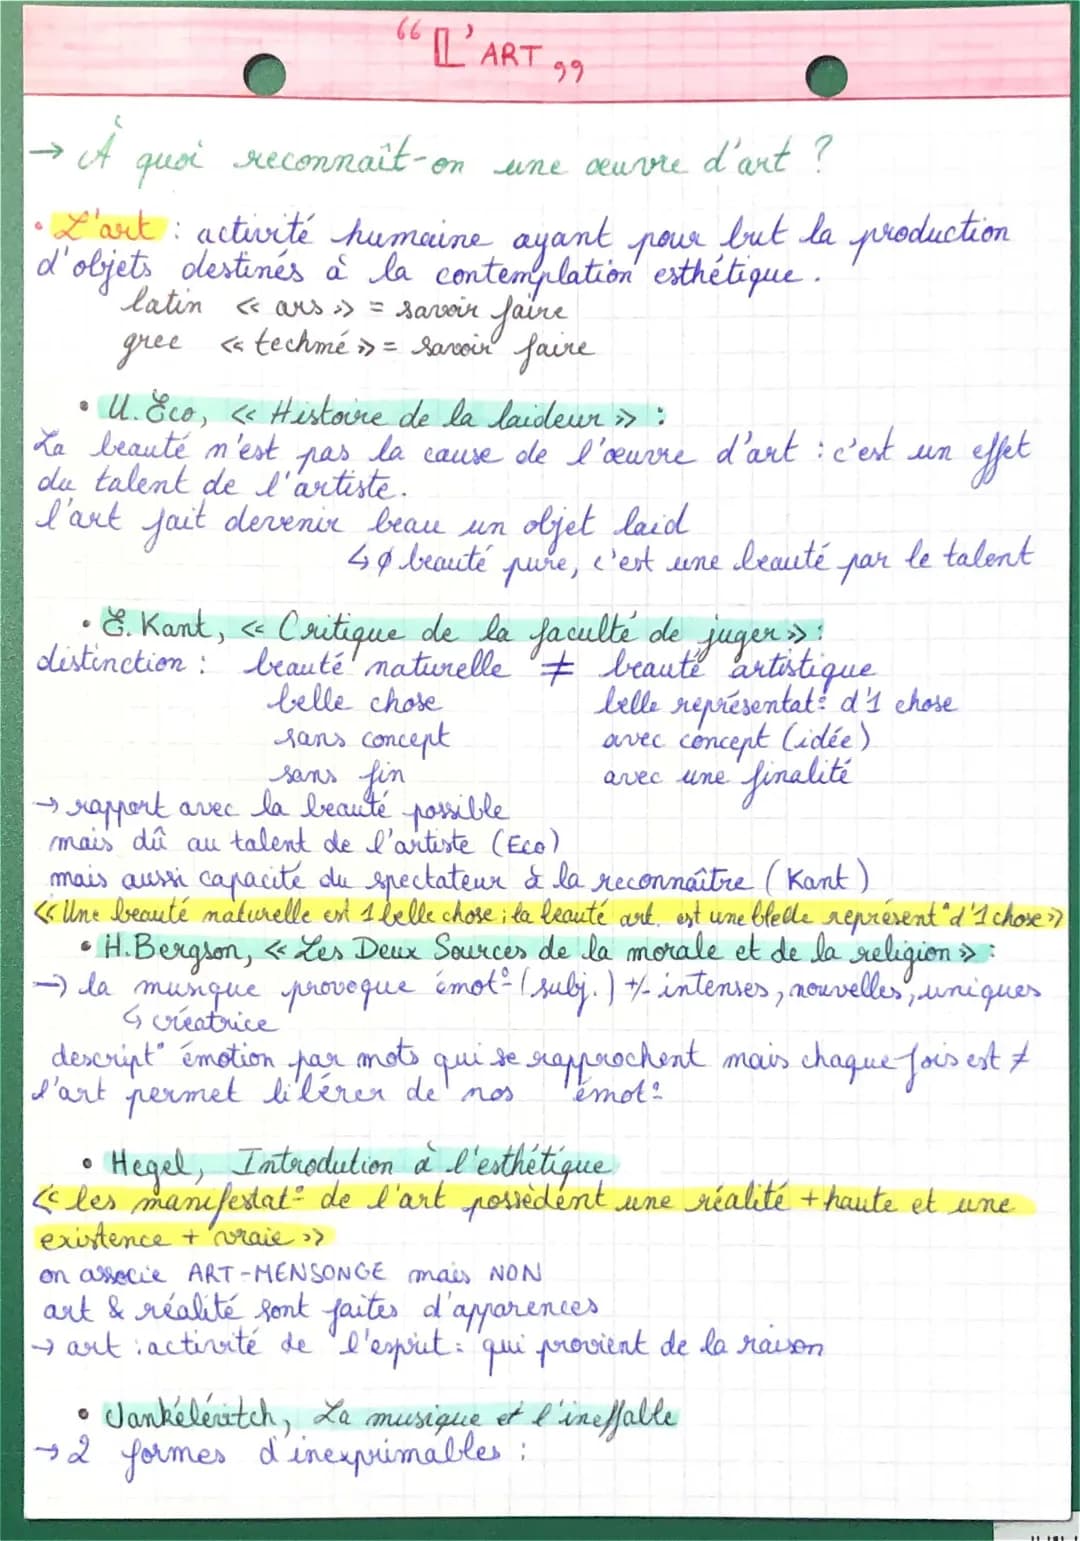 “L'ART”
→ À quoi reconnaît-on une œuvre d'art ?
• L'art : activité humaine ayant pour but la production
d'objets destinés à la contemplation esthétique.
latin « ars » = savoir faire
grec « techmé » = savoir faire
• U. Eco, « Histoire de la laideur » :
La beauté n'est pas la cause de l'œuvre d'art : c'est un effet
du talent de l'artiste.
l'art fait devenir beau un objet laid
↳ ø beauté pure, c'est une beauté par le talent
• E. Kant, « Critique de la faculté de juger » :
distinction : beauté naturelle ≠ beauté artistique
belle chose belle représentat° d'1 chose
sans concept avec concept (idée)
sans fin avec une finalité
→ rapport avec la beauté possible
mais dû au talent de l'artiste (Eco)
mais aussi capacité du spectateur à la reconnaître (Kant)
« Une beauté naturelle est 1 belle chose ; la beauté art. est une blelle représent° d'1 chose »
• H. Bergson, « Les Deux Sources de la morale et de la religion » :
→ la musique provoque émot° (subj.) +/- intenses, nouvelles, uniques
↳ créatrice
descript° émotion par mots qui se rapprochent mais chaque fois est ≠
l'art permet libérer de nos émot°
• Hegel, Introdution à l'esthétique
« les manifestat° de l'art possèdent une réalité + haute et une
existence + vraie »
on associe ART-MENSONGE mais NON
art & réalité sont faites d'apparences
→ art : activité de l'esprit : qui provient de la raison
• Jankélévitch, La musique et l'ineffable
→ 2 formes d'inexprimables :